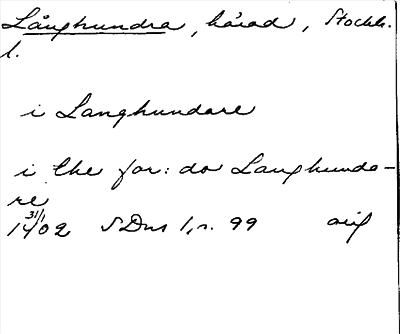 Långhundra, härad, Stockh.
l.
i Langhundare
i the for: do Langhunda-
re
31/1
1402 SDns 1, n. 99 orig